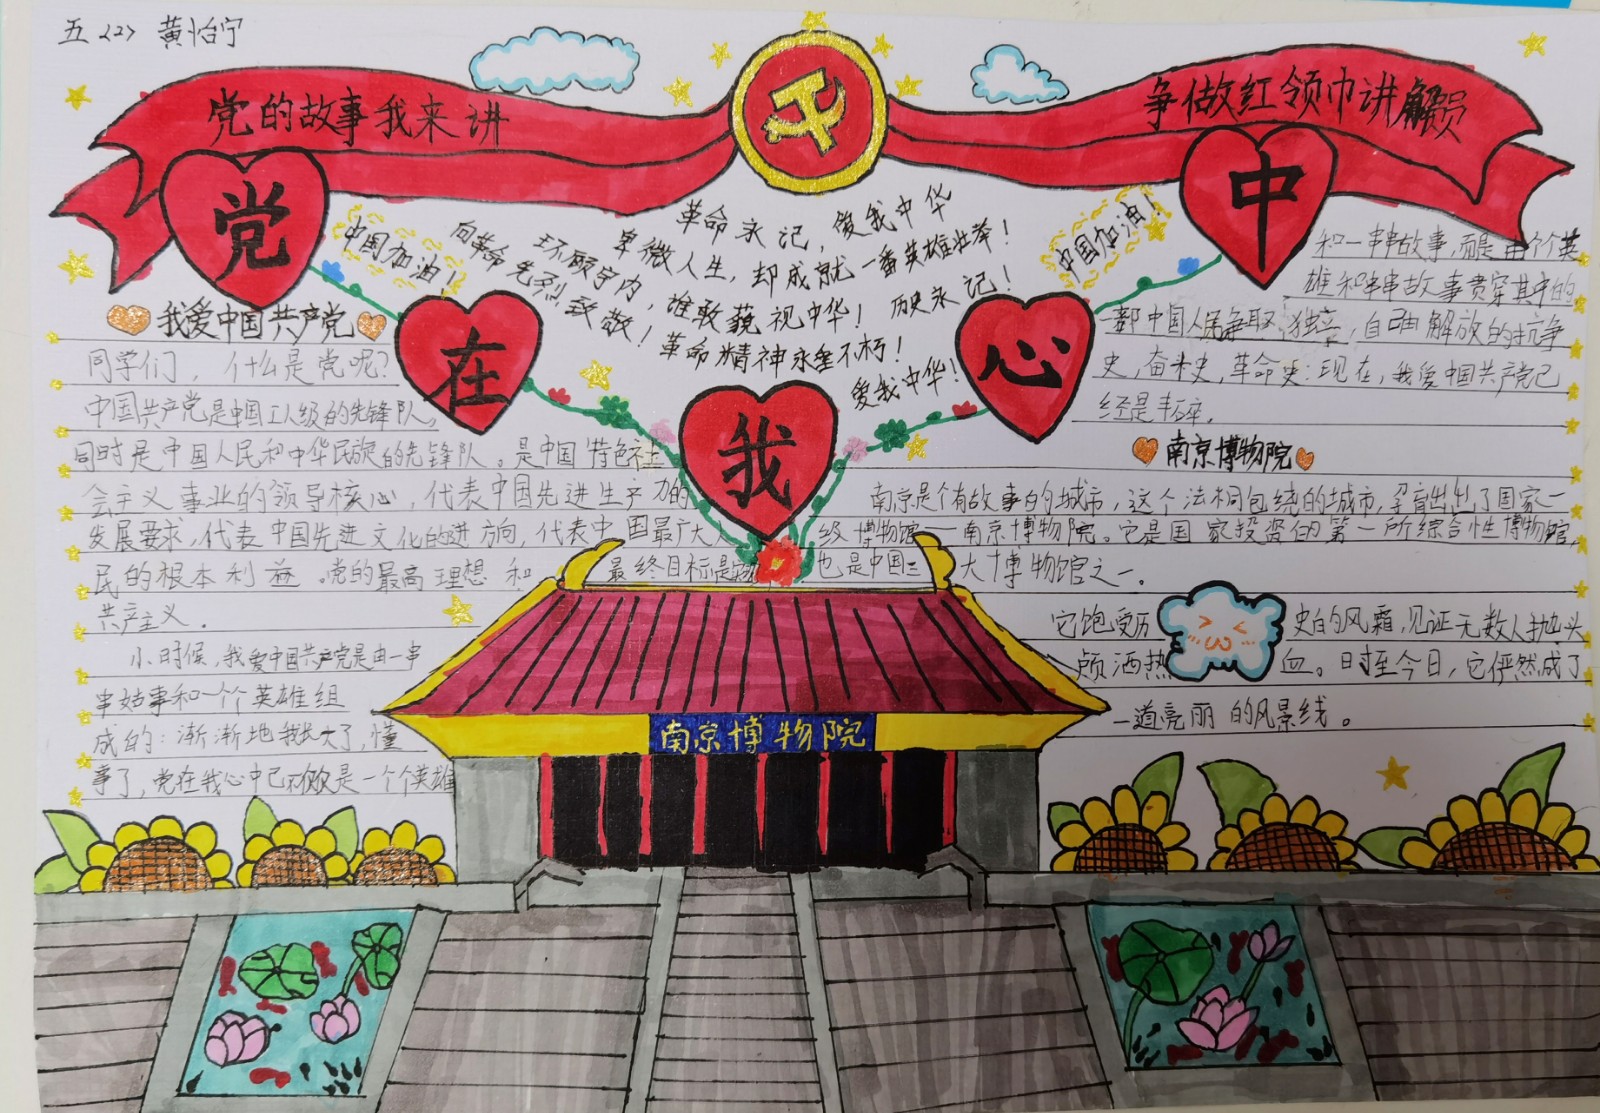 五<2> 黄怡宁
党的故事我来讲
争做红领巾讲解员
党
在
我
心
中
中国加油！
中国加油！
革命永记，爱我中华
卑微人生，却成就一番英雄壮举！
环顾宇内，谁敢藐视中华！历史永记！
向革命先烈致敬！革命精神永垂不朽！
爱我中华！
我爱中国共产党
同学们，什么是党呢？
中国共产党是中国工人级的先锋队，
同时是中国人民和中华民族的先锋队。是中国特色社
会主义事业的领导核心，代表中国先进生产力的
发展要求，代表中国先进文化的进方向，代表中国最广大人
民的根本利益。党的最高理想和最终目标是实
共产主义．
小时候，我爱中国共产党是由一串
串故事和一个个英雄组
成的：渐渐地我长大了，懂
事了，党在我心中已不仅仅是一个个英雄
和一串串故事，而是由个个英
雄和串串故事贯穿其中的
一部中国人民争取，独立，自由解放的抗争
史，奋斗史，革命史：现在，我爱中国共产党已
经是丰碑．
南京博物院
南京是个有故事的城市，这个法桐包绕的城市，孕育出出了国家一
级博物馆——南京博物院。它是国家投资的第一所综合性博物馆，
也是中国三大博物馆之一．
它饱受历史的风霜，见证无数人抛头
颅洒热血。时至今日，它俨然成了
一道亮丽的风景线。
南京博物院